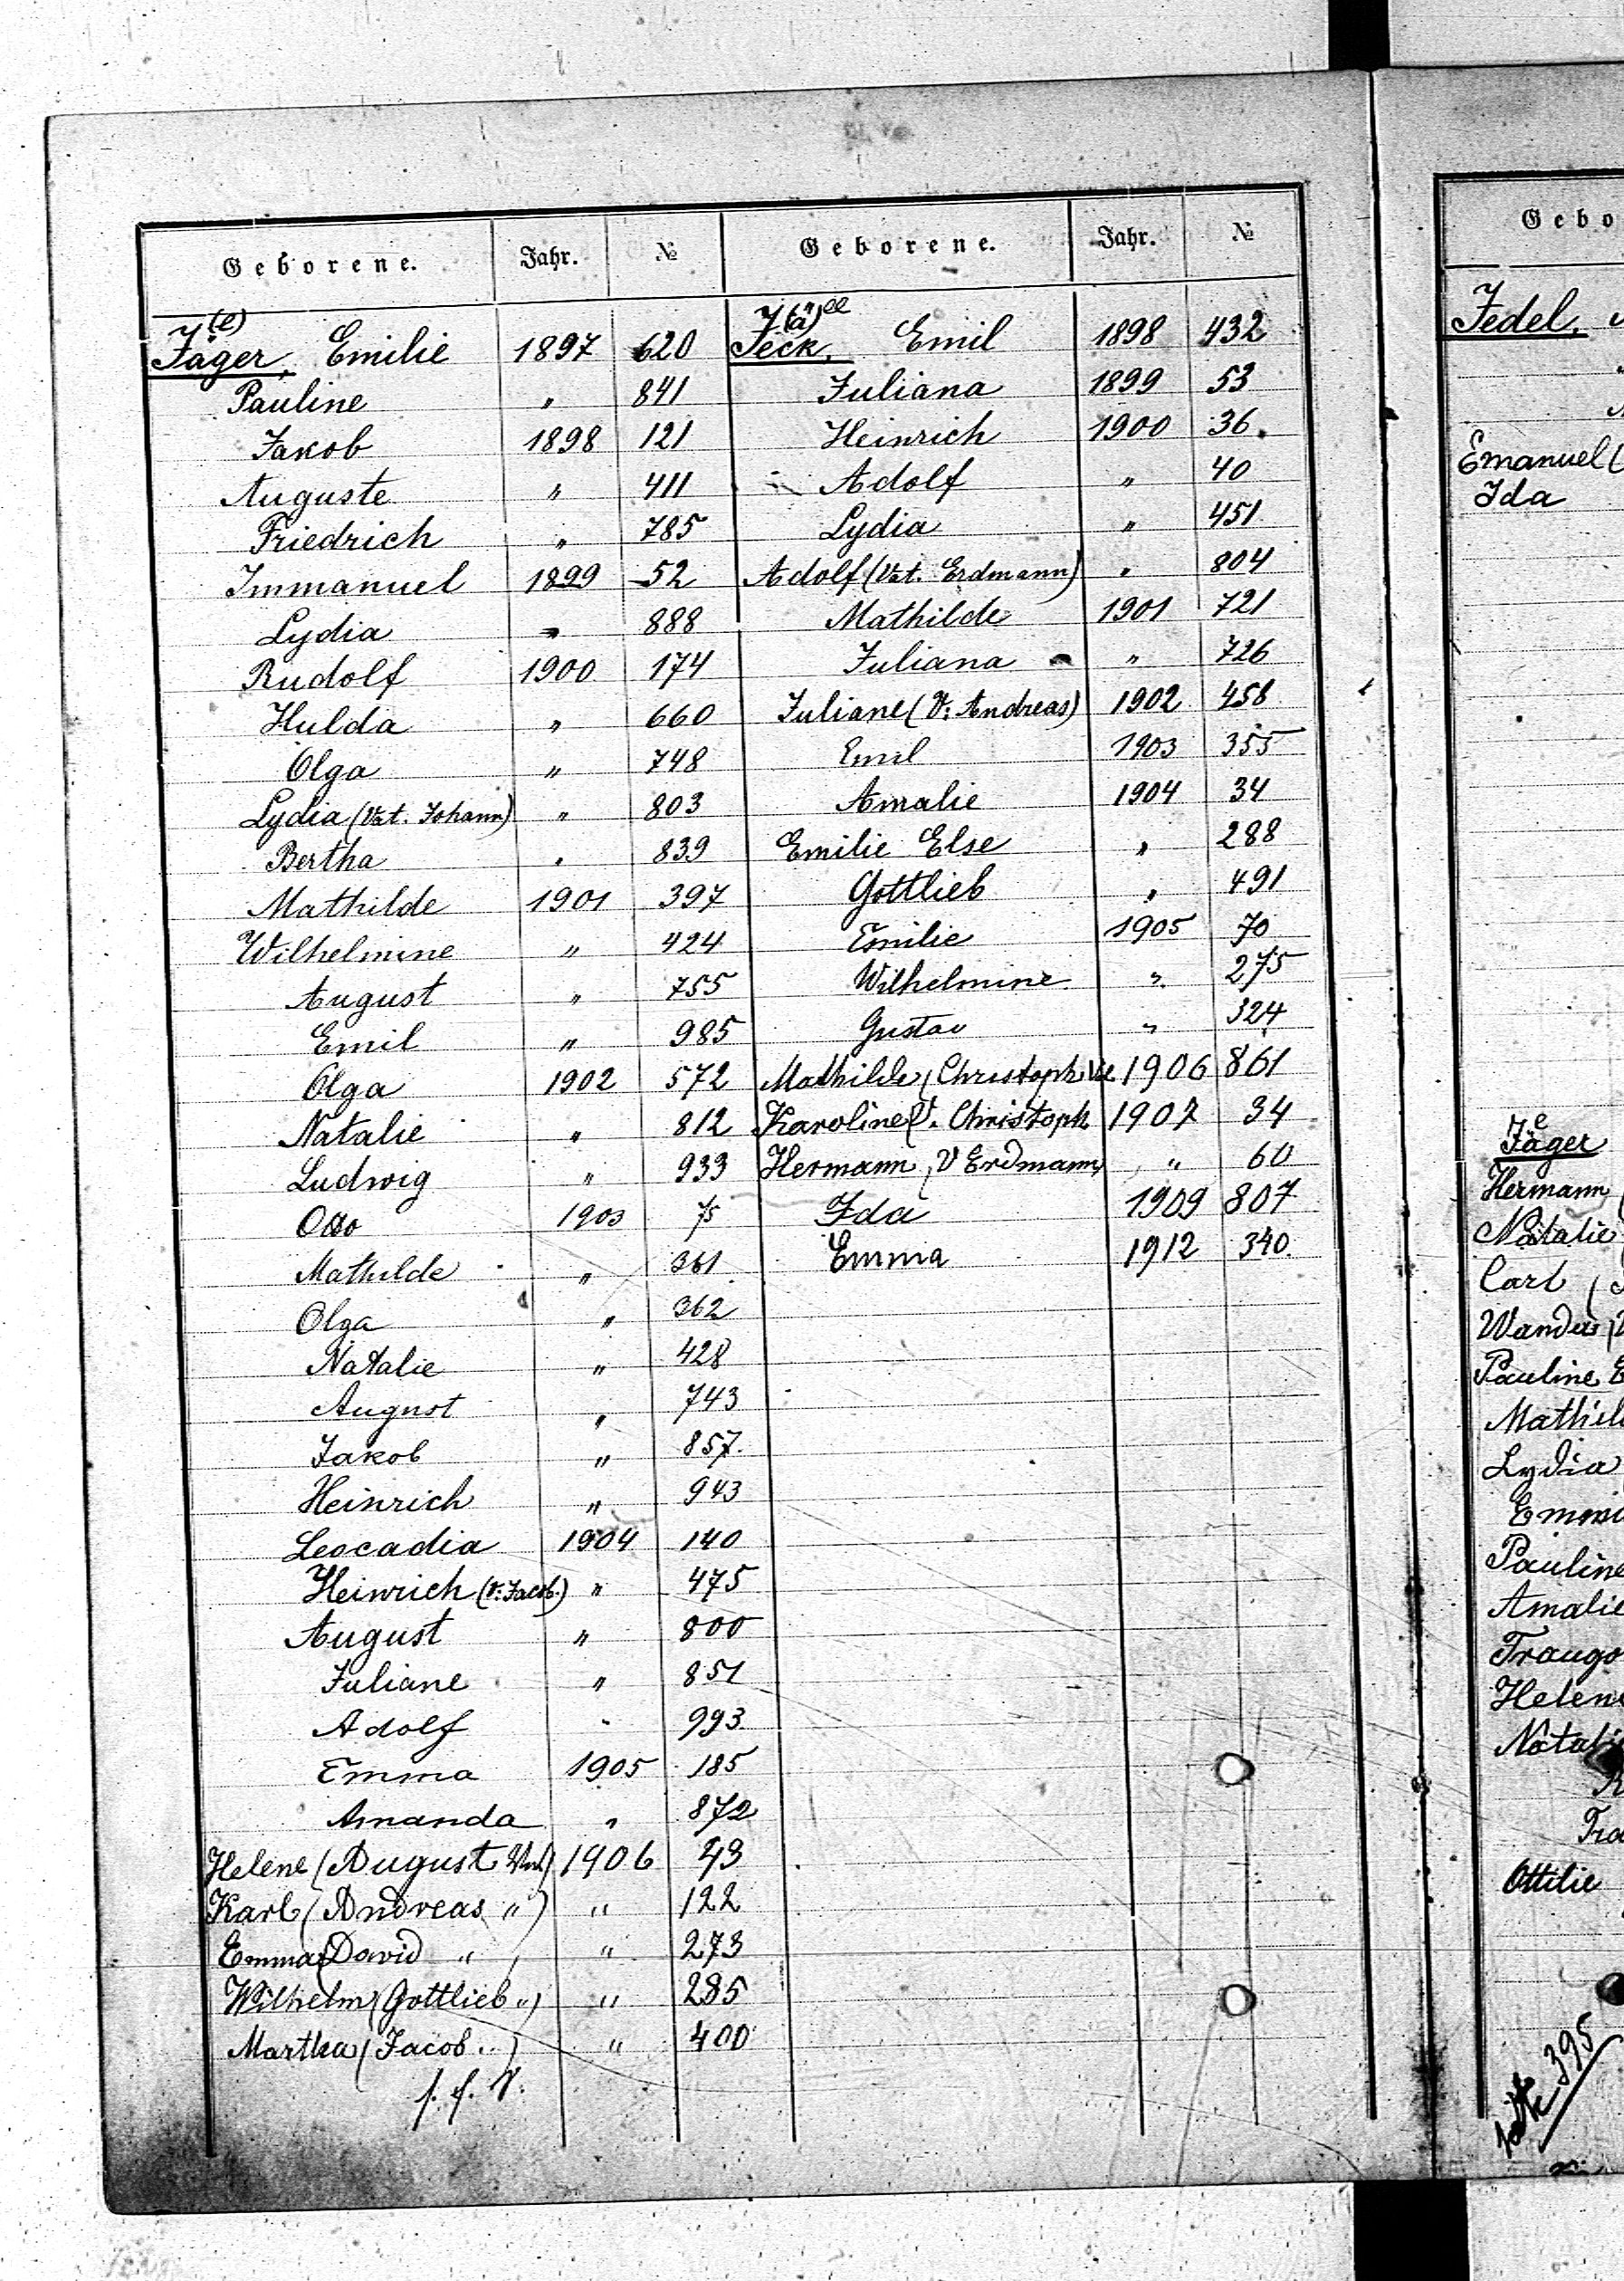 Geborene. Jahr. №
(e)
Jäger, Emilie 1897 620
Pauline " 841
Jakob 1898 121
Auguste " 411
Friedrich " 785
Immanuel 1899 52
Lydia " 888
Rudolf 1900 174
Hulda " 660
Olga " 748
Lydia (Vat. Johann) " 803
Bertha " 839
Mathilde 1901 397
Wilhelmine " 424
August " 755
Emil " 985
Olga 1902 572
Natalie " 812
Ludwig " 933
Otto 1903 75
Mathilde " 361
Olga " 362
Natalie " 428
August " 743
Jakob " 857.
Heinrich " 943
Leocadia 1904 140
Heinrich (V. Jacob.) " 475
August " 800
Juliane " 851
Adolf " 993
Emma 1905 185
Amanda " 872
Helene (August Vat.) 1906 43
Karl (Andreas ") " 122
Emma (David " ) " 273
Wilhelm (Gottlieb ") " 285
Martha (Jacob ") " 400
Geborene. Jahr. №
(ä)
Jeck, Emil 1898 432
Juliana 1899 53
Heinrich 1900 36
Adolf " 40
Lydia " 451
Adolf (Vat. Erdmann) " 804
Mathilde 1901 721
Juliana " 726
Juliane (V: Andreas) 1902 458
Emil 1903 355
Amalie 1904 34
Emilie Else " 288
Gottlieb " 491
Emilie 1905 70
Wilhelmine " 275
Gustav " 324
Mathilde (Christoph 1906 861
Karoline (V. Christoph 1907 34
Hermann (V Erdmann) " 60
Ida 1909 807
Emma 1912 340
Gebo
Jedel,
Emanuel (
Ida
e
Jäger
Hermann (
Natalie
Carl (
Wanda
Pauline E
Mathil
Lydia
Emi
Pauline
Amalie
Traugo
Helene
Natali
Tra
Ottilie
395